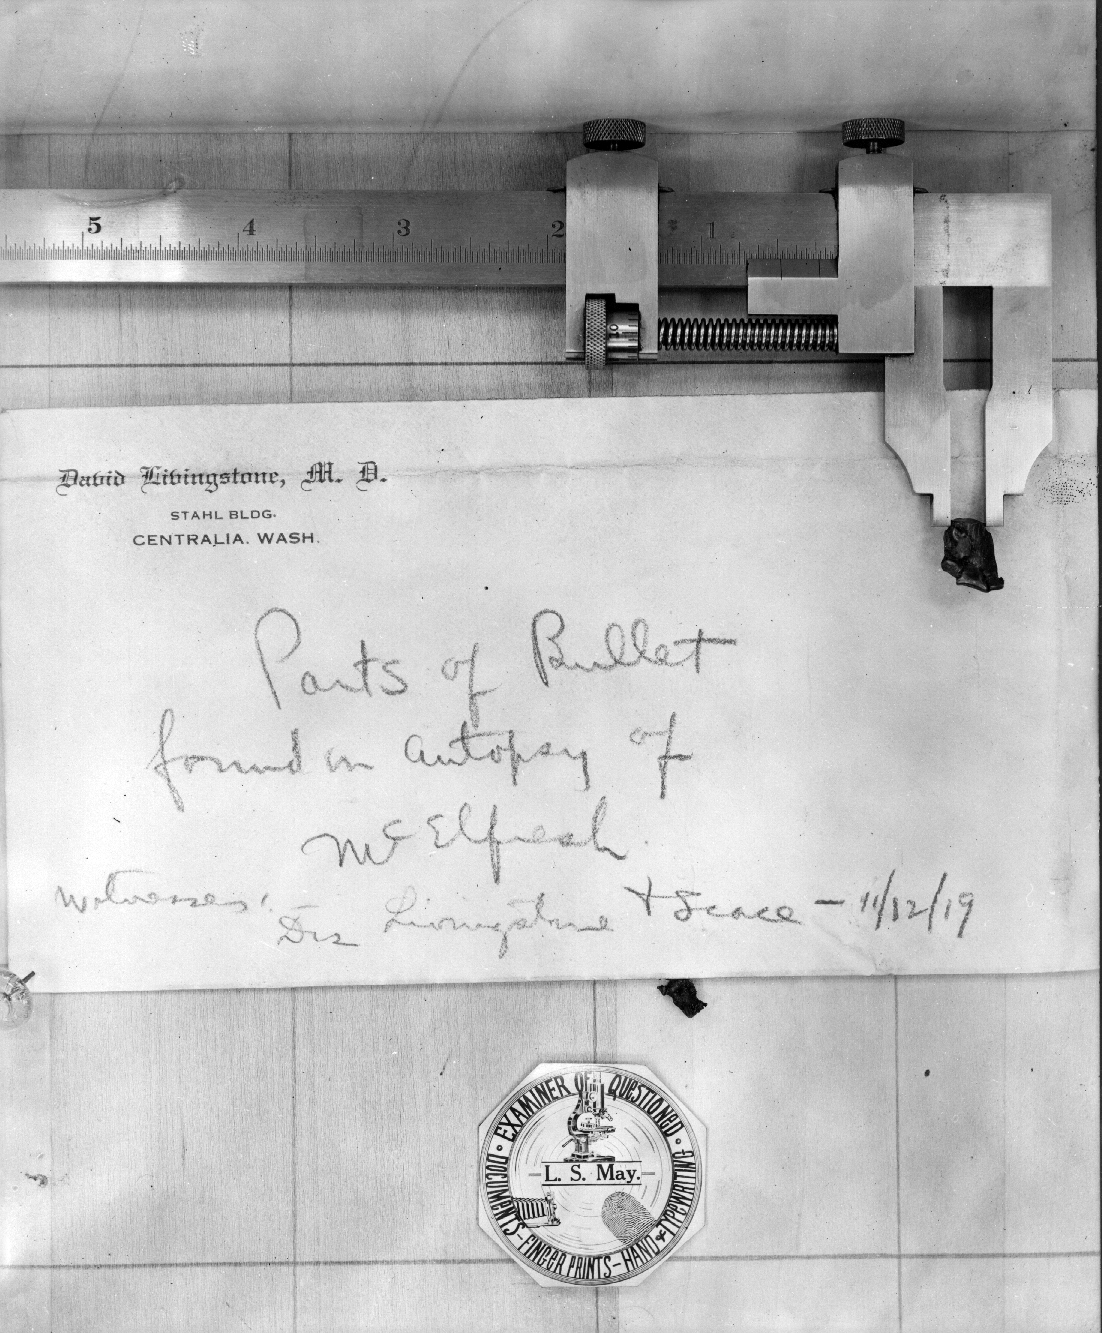 5 4 3 2 1
David Livingstone, M. D.
STAHL BLDG.
CENTRALIA. WASH.
Parts of Bullet
found in autopsy of
McElfresh.
Witnesses:—
Drs Livingstone + Scace — 11/12/19
EXAMINER OF QUESTIONED
DOCUMENTS—FINGER PRINTS—HAND & TYPEWRITING
L. S. May.